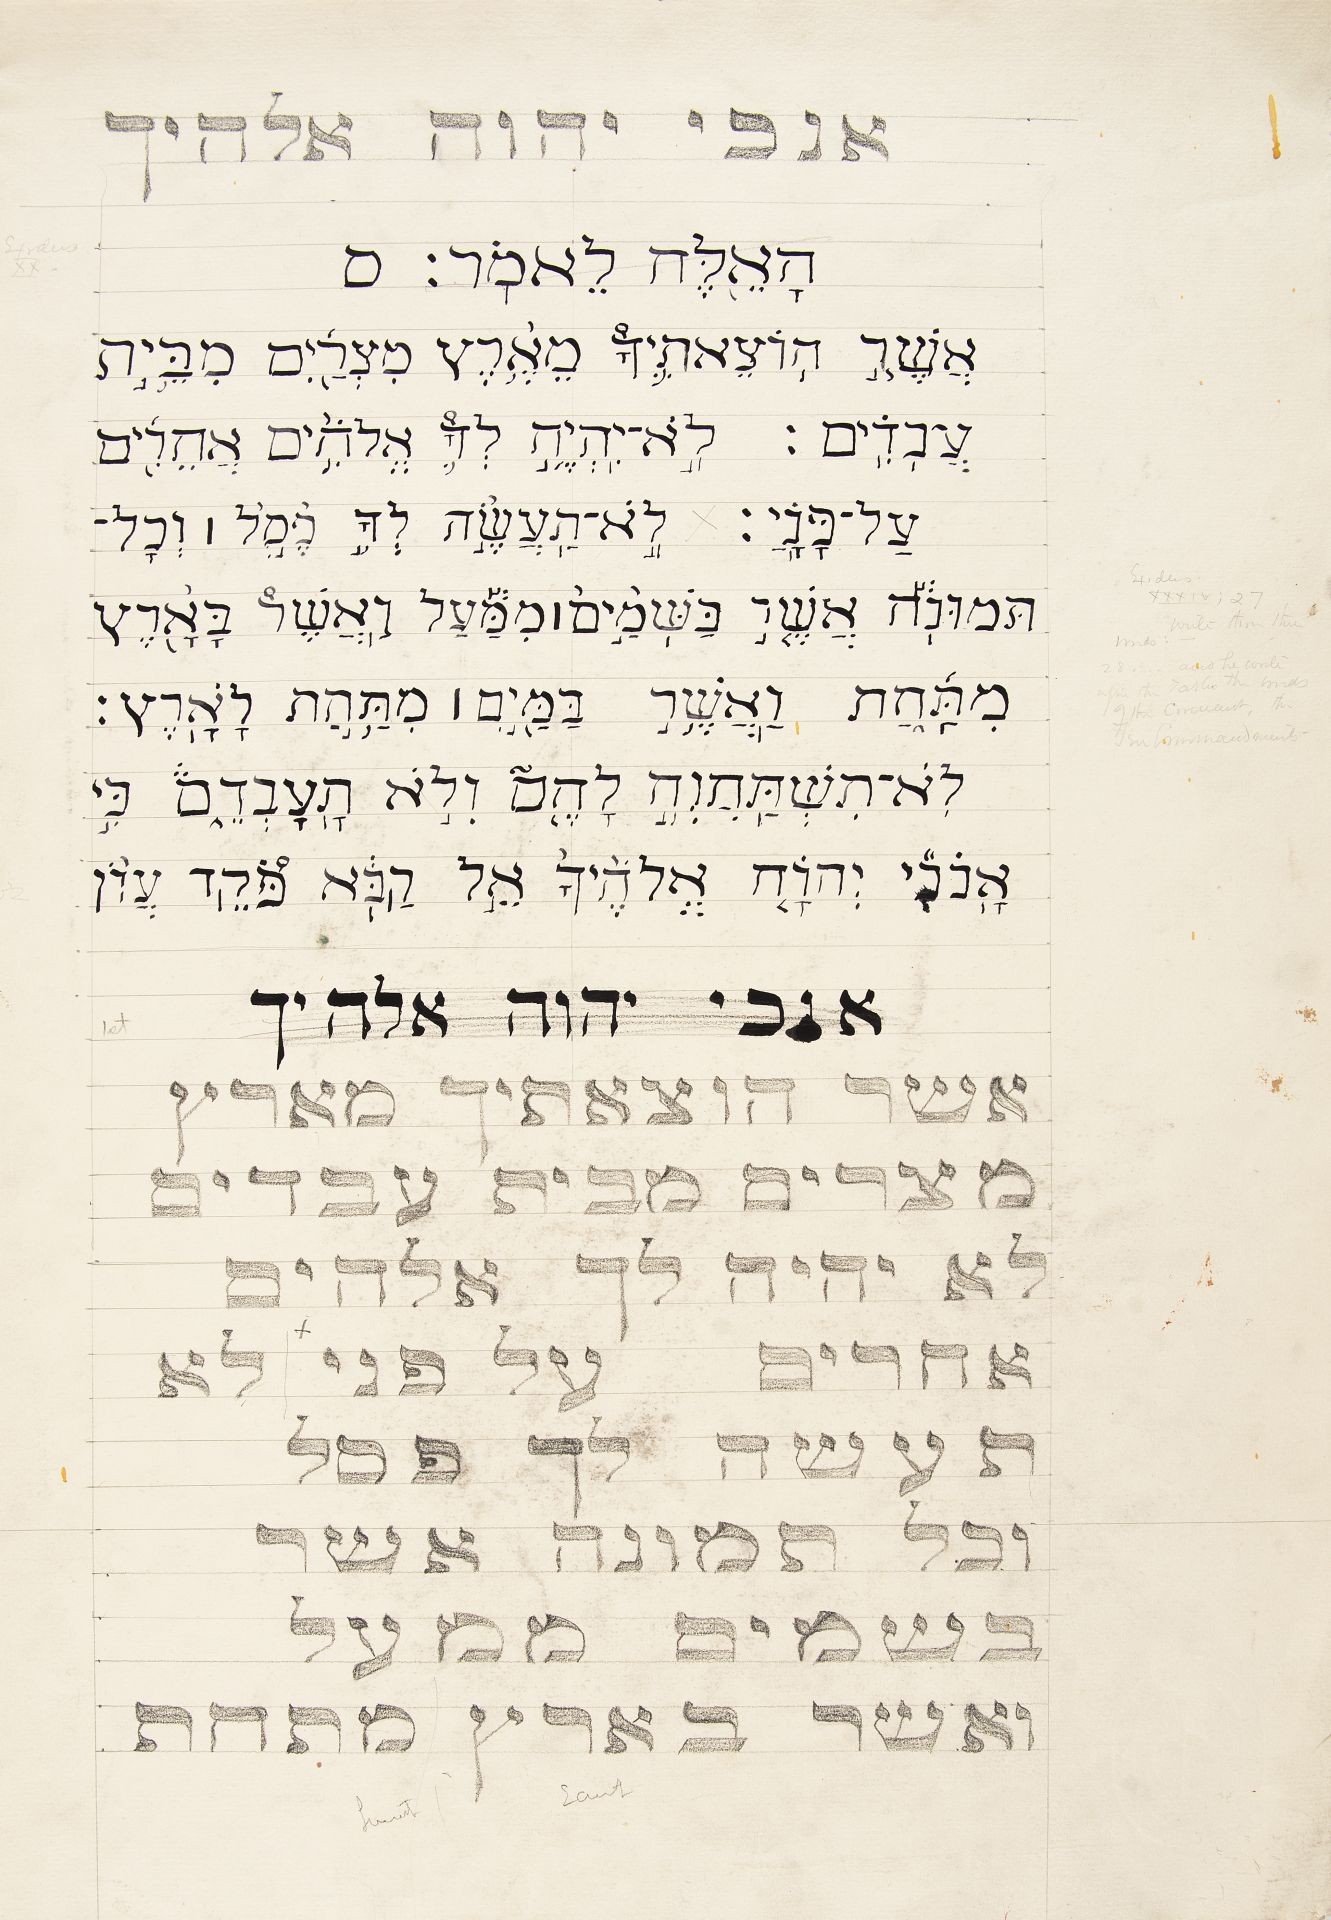 אנכי יהוה אלהיך
Exodus
XX.
הָאֵ֖לֶּה לֵאמֹֽר׃ ס
אֲשֶׁ֧ר הוֹצֵאתִ֛יךָ מֵאֶ֥רֶץ מִצְרַ֖יִם מִבֵּ֣ית
עֲבָדִ֑ים׃ לֹֽא־יִהְיֶ֥ה לְךָ֛ אֱלֹהִ֥ים אֲחֵרִ֖ים
עַל־פָּנָֽי׃ לֹֽא־תַעֲשֶׂ֨ה לְךָ֥ פֶ֙סֶל֙ ׀ וְכָל־
תְּמוּנָ֔ה אֲשֶׁ֤ר בַּשָּׁמַ֙יִם֙ ׀ מִמַּ֔עַל וַֽאֲשֶׁ֥ר בָּאָ֖רֶץ
מִתָּ֑חַת וַאֲשֶׁ֥ר בַּמַּ֖יִם ׀ מִתַּ֥חַת לָאָֽרֶץ׃
לֹֽא־תִשְׁתַּחֲוֶ֥ה לָהֶ֖ם וְלֹ֣א תָעָבְדֵ֑ם כִּ֣י
אָֽנֹכִ֞י יְהוָ֤ה אֱלֹהֶ֙יךָ֙ אֵ֣ל קַנָּ֔א פֹּ֠קֵד עֲוֺ֨ן
Exodus
XXXIV; 27
write thou these
words:
28 ... and he wrote
upon the Tables the words
of the Covenant, the
Ten Commandments-
אנכי יהוה אלהיך
אשר הוצאתיך מארץ
מצרים מבית עבדים
לא יהיה לך אלהים
אחרים על פני לא
תעשה לך פסל
וכל תמונה אשר
בשמים ממעל
ואשר בארץ מתחת